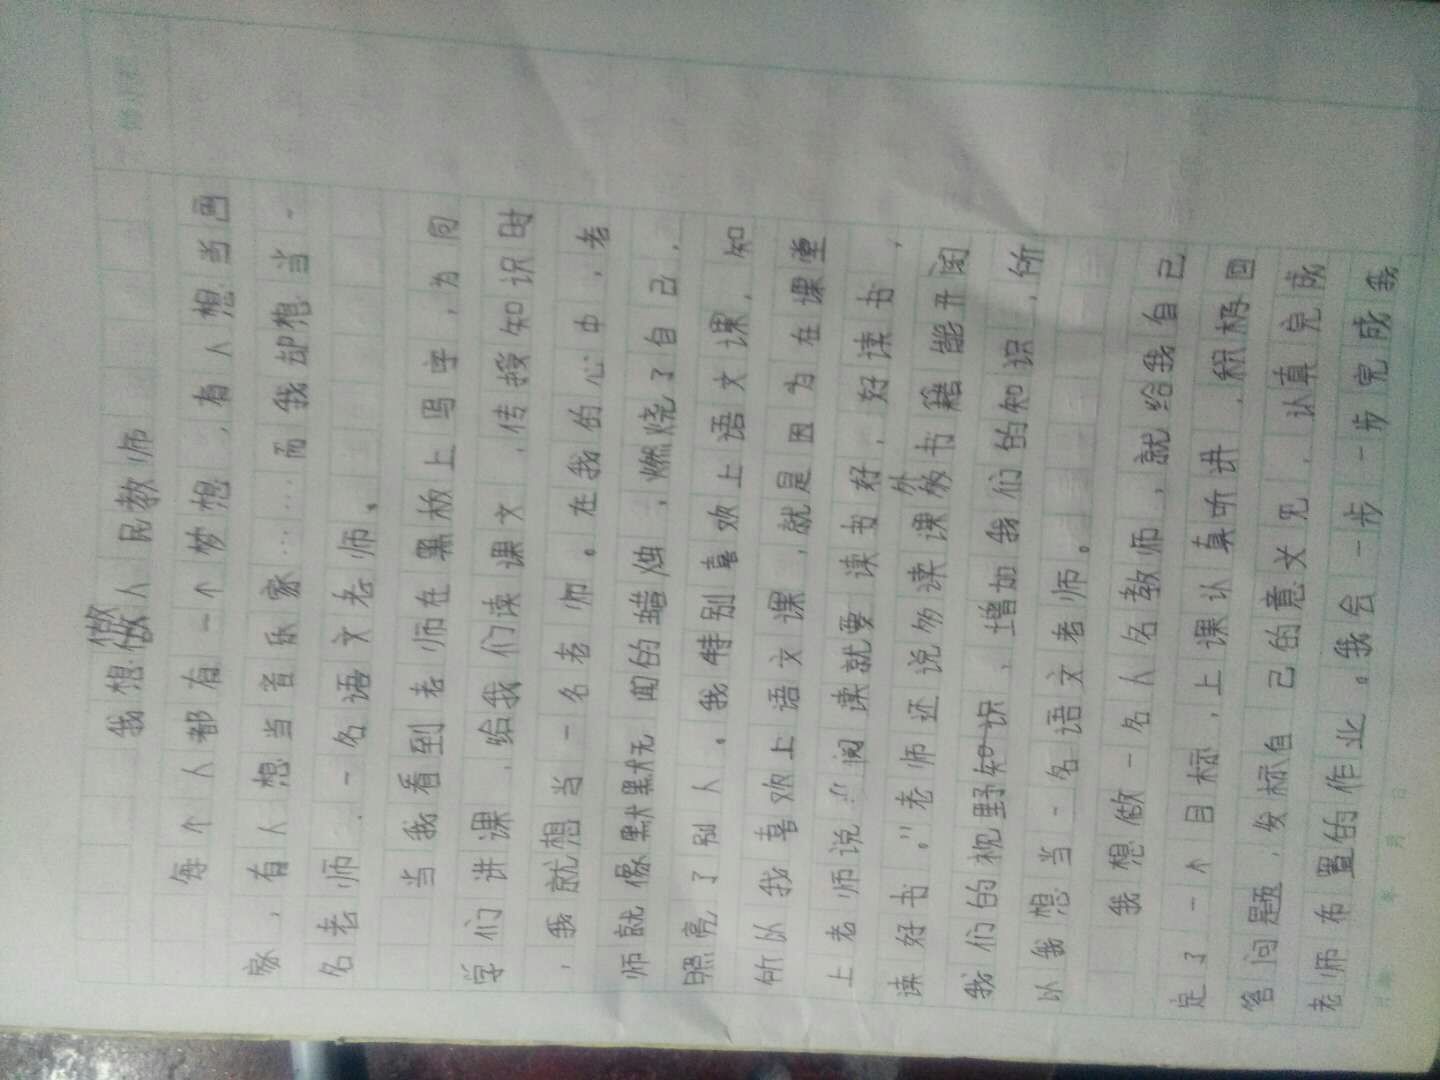 我想做人民教师
每个人都有一个梦想，有人想当画
家，有人想当音乐家……而我却想当一
名老师，一名语文老师。
当我看到老师在黑板上写字，为同
学们讲课，给我们读课文，传授知识时
，我就想当一名老师。在我的心中，老
师就像默默无闻的蜡烛，燃烧了自己，
照亮了别人。我特别喜欢上语文课，知
所以我喜欢上语文课，就是因为在课堂
上老师说：“阅读就要读书好，好读书，
读好书。”老师还说多读课外书籍能开阔
我们的视野知识，增加我们的知识，所
以我想当一名语文老师。
我想做一名人名教师，就给我自己
定了一个目标，上课认真听讲，积极回
答问题，发标自己的意义见，认真完成
老师布置的作业。我会一步一步完成我